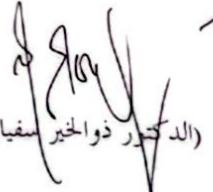 (الدكتور ذوالخير سفيا